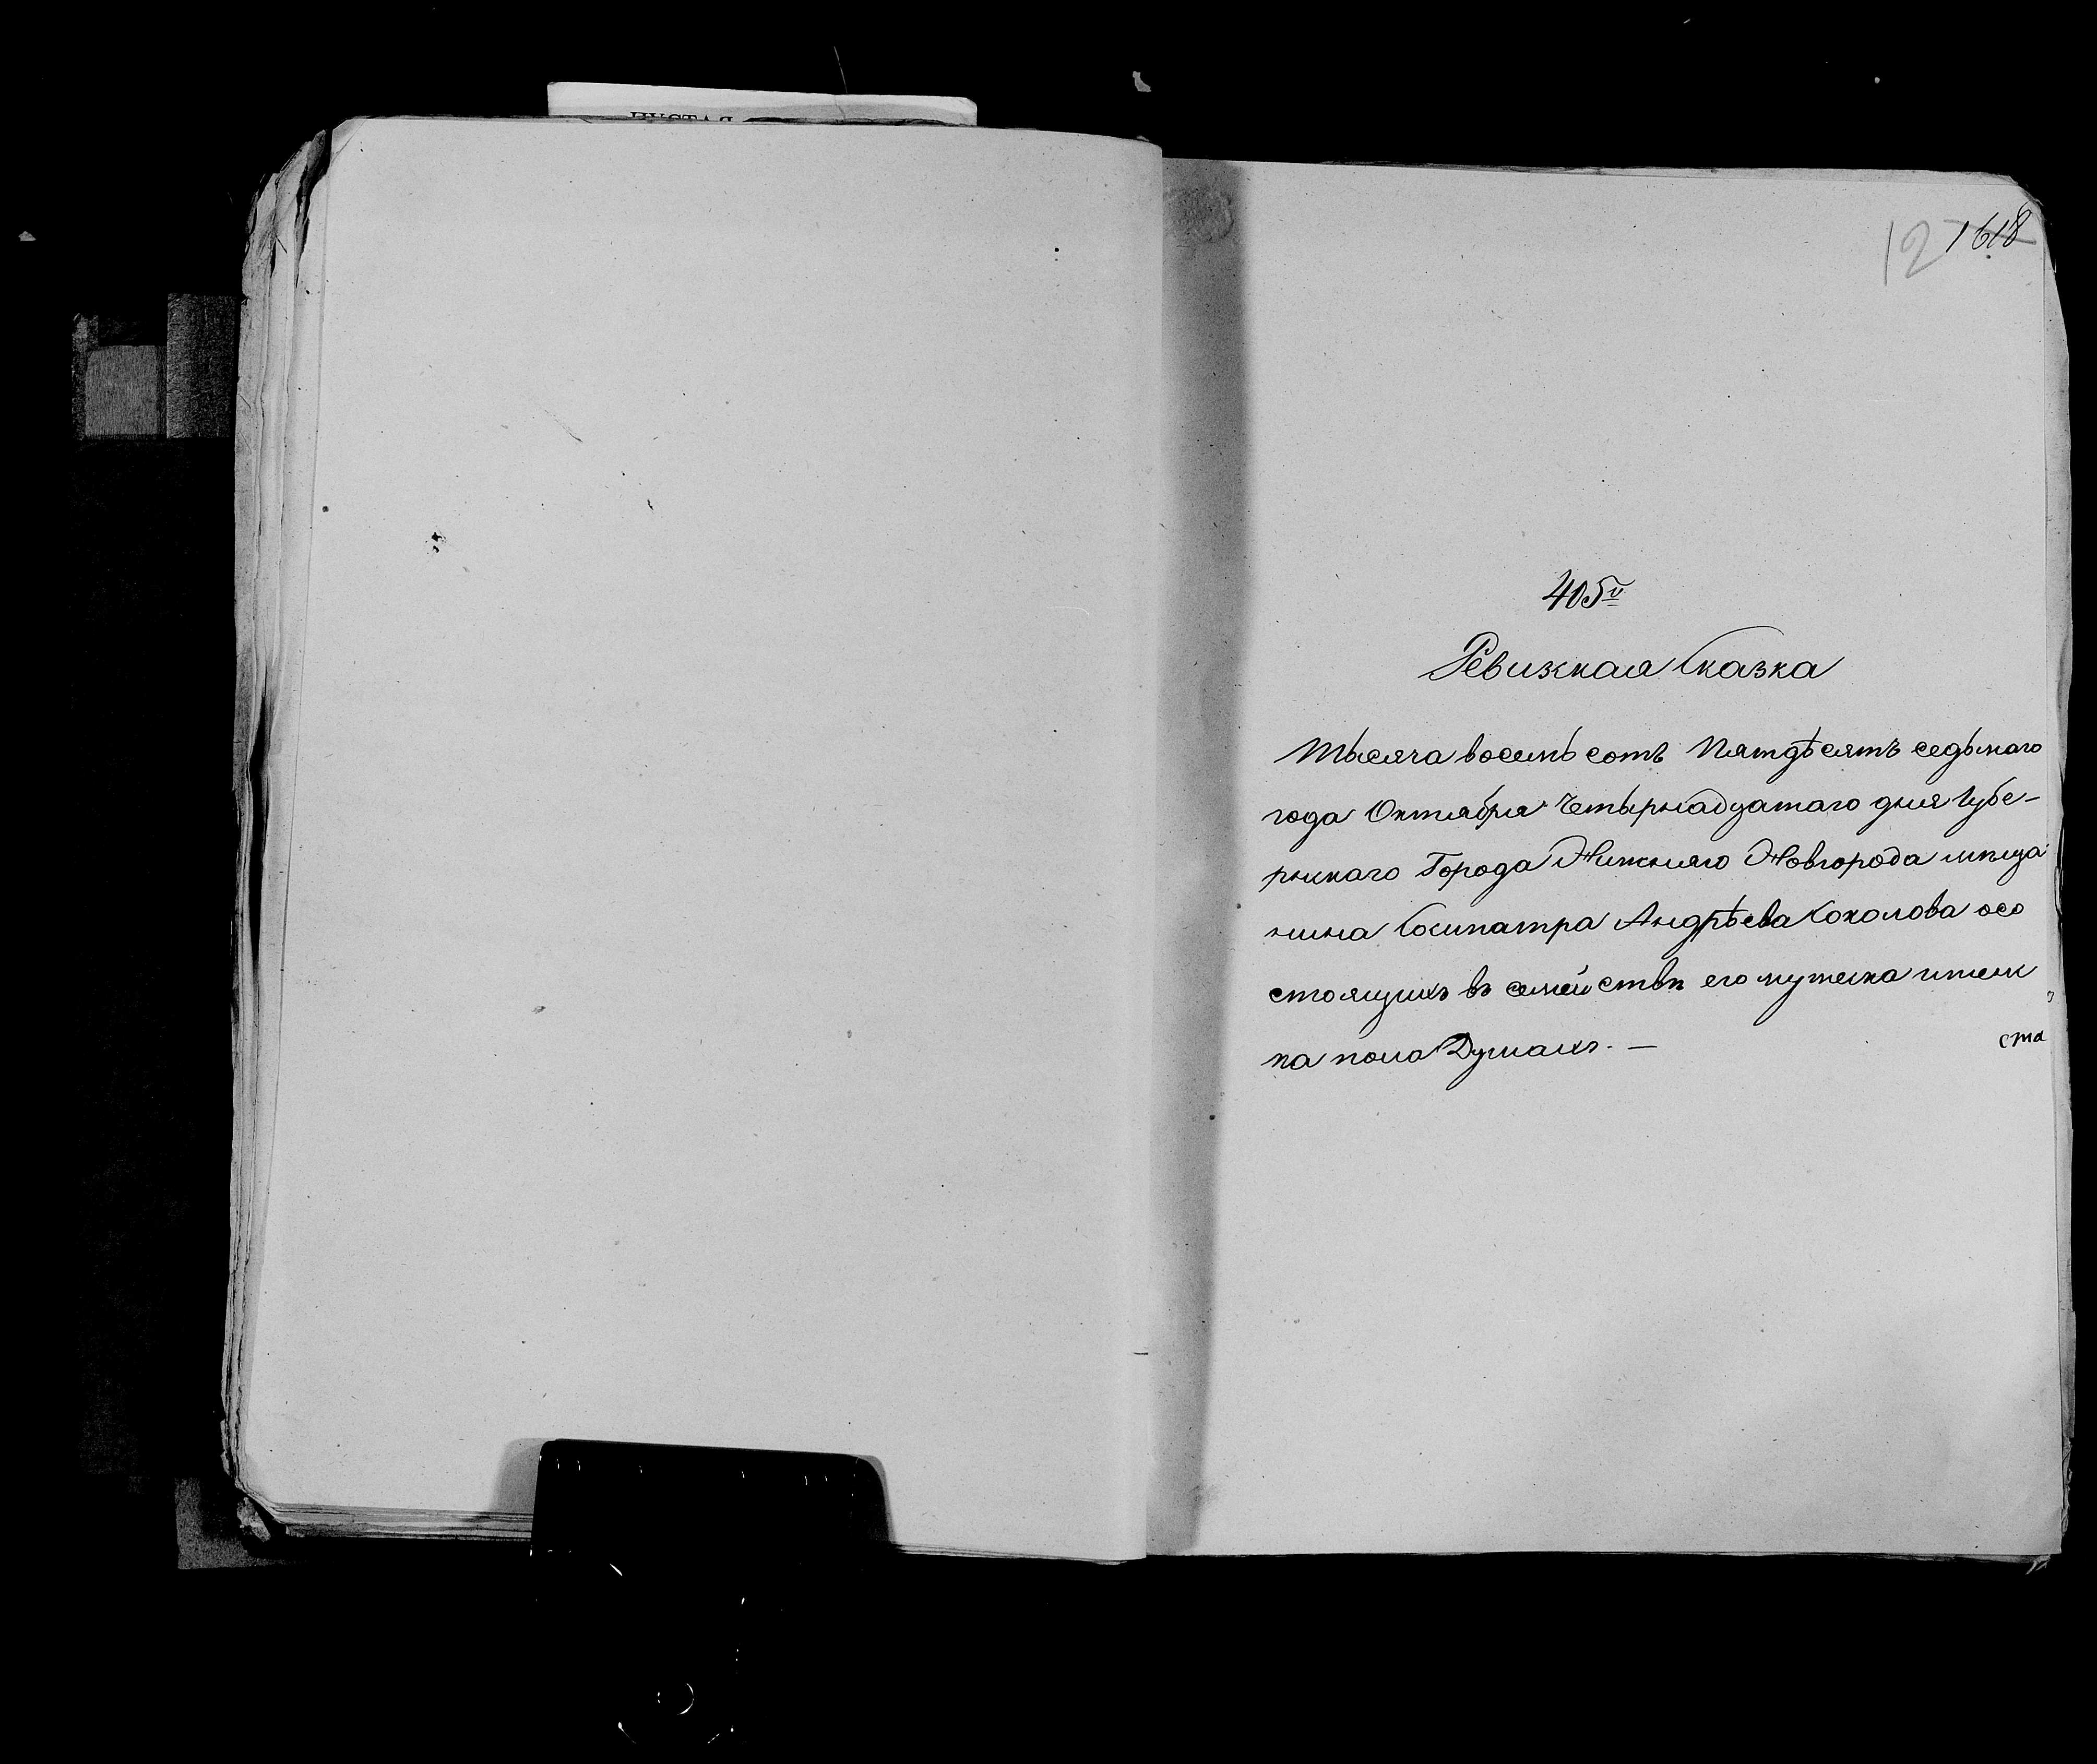 ПУСТАЯ
12 1618
405й
Ревизкая Сказка
Тысяча восемь сотъ Пятдѣсятъ седьмаго
года Октября Четырнадцатаго дня Губе-
рнкаго Города Нижняго Новгорода мѣща
нина Сосипатра Андрѣева Соколова осо
стоящихъ въ семействѣ его мужеска и женс
ка пола Душахъ. —
ста